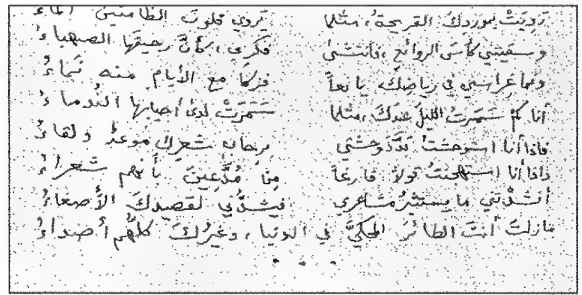 رَوِيَتْ بموردكَ القريحةُ، مثلما تروي قلوبَ الظامئين الماءُ
وسقيتني كأسَ الروائعِ، فانتشى فكري، كأنَّ رحيقَها الصهباءُ
ونما غراسي في رياضك، يانعاً فزكا مع الأيام منه نَماءُ
أنا كمْ سَمَرتُ الليلَ عندَكَ، مثلما سَمَرَتْ لدى أصحابها النُّدماءُ
فإذا أنا استوحشتُ بَدَّدَ وحشتي شعرك موعدٌ ولقاءُ
وإذا أنا استهجنتُ قولاً فارغاً مِن مُدَّعينَ بأنهم شعراءُ
أنشدْتَني ما يستثيرُ مشاعري فيشدُّني لقصيدكَ الأصغاءُ
مازلتَ أنتَ الطائرَ المحكيَّ في الدنيا، وغيرُكَ كلُّهم أصداءُ